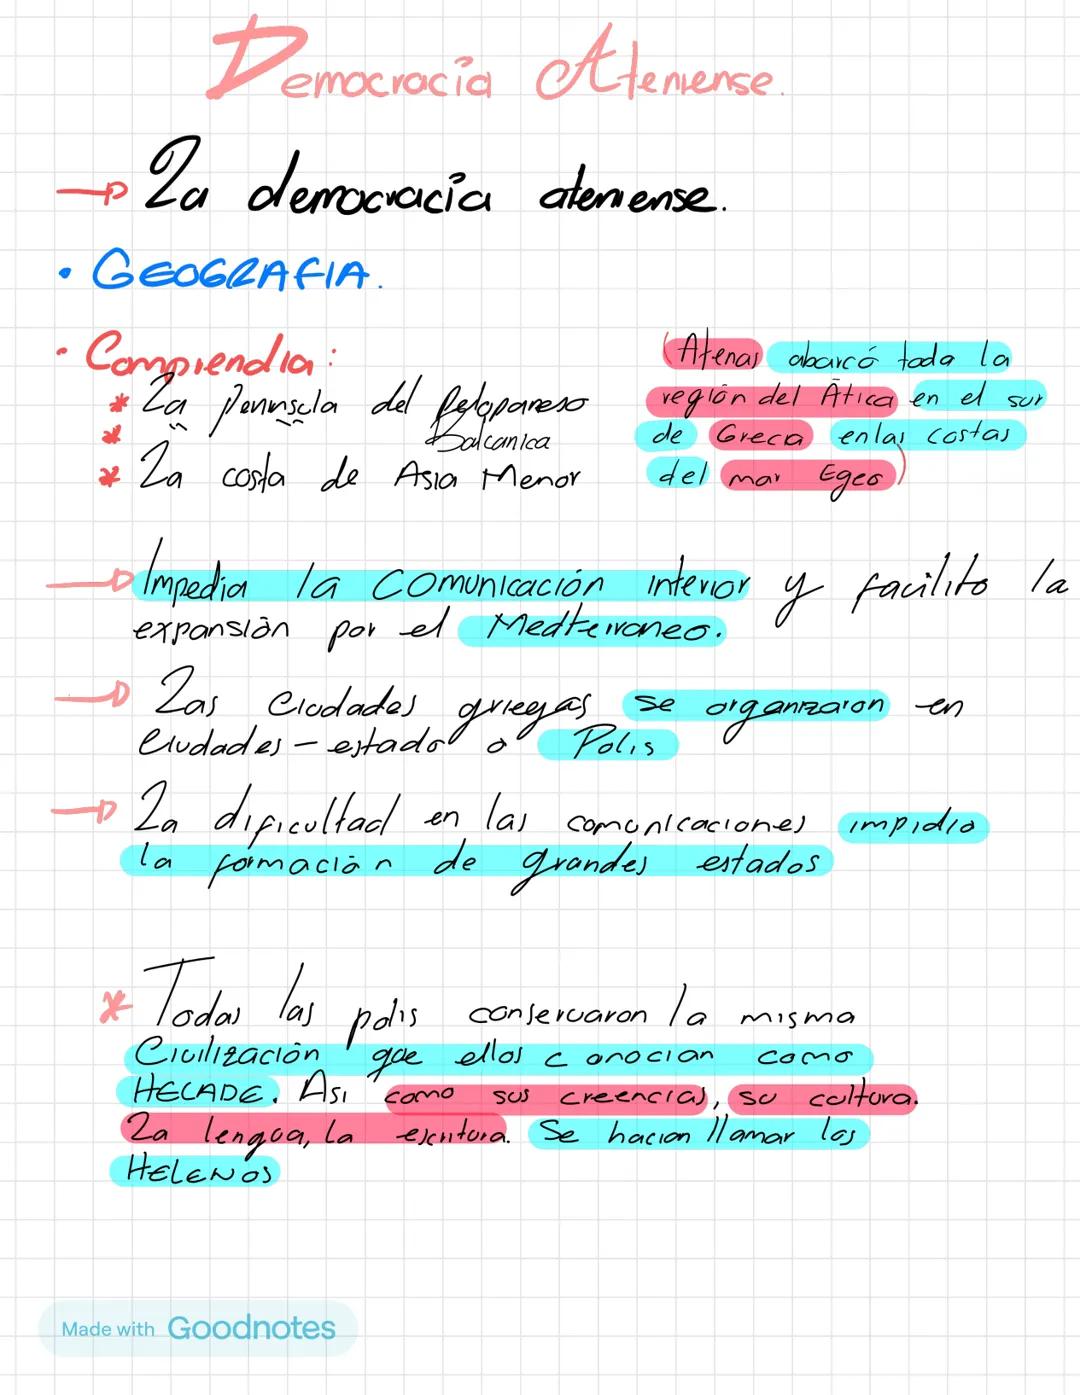 Democracia Ateniense.
→ La democracia ateniense.
• GEOGRAFIA.
• Comprendia:
* La peninscla del Peloponeso
* Balcanica
* La costa de Asia Menor
(Atenas abarcó toda la
región del Ática en el sur
de Grecia en las costas
del mar Egeo)
→ Impedia la comunicación interior y facilito la
expansión por el Mediterraneo.
→ Las Ciudades griegas se organizaron en
Ciudades-estado o Polis
→ La dificultad en las comunicaciones impidio
la formación de grandes estados
* Todas las polis conservaron la misma
Civilización que ellos conocian como
HECADE. Asi como sus creencias, su cultura.
La lengua, la escritura. Se hacian llamar los
HELENOS
Made with Goodnotes